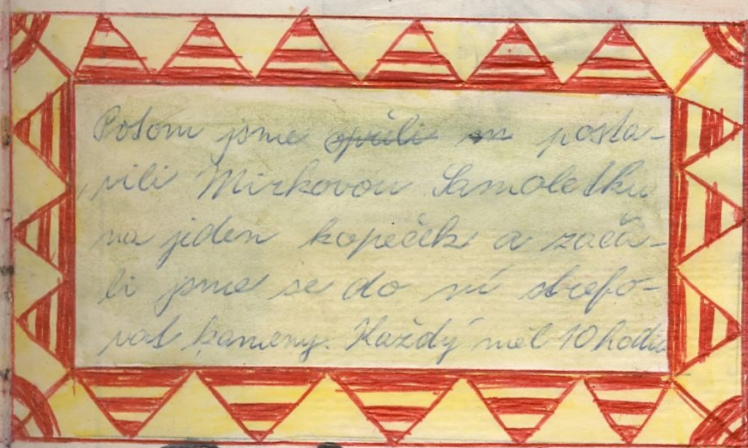 Potom jsme opúli m posta-
vili Mirkovou Samoletku
na jeden kopeček a zača-
li jsme se do ní strefo-
vat kameny. Každý měl 10 hodů